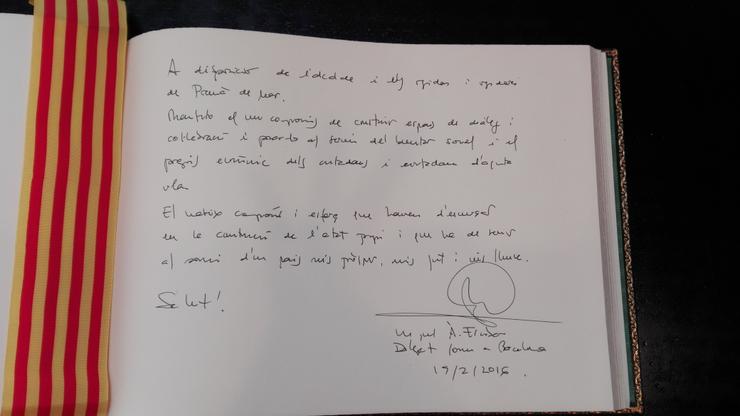 A disposició de l'alcalde i els regidors i regidores
de Premià de Mar.
Mantinc el meu compromís de construir espais de diàleg i
col·laboració i posar-lo al servei del benestar social i el
progrés econòmic dels ciutadans i ciutadanes d'aquesta
vila
El mateix compromís i esforç que havem d'esmerçar
en la construcció de l'estat propi i que ha de servir
al servei d'un país més pròsper, més just i més lliure.
Salut!
Miquel À.
Delegat Govern a Barcelona
19/2/2016.